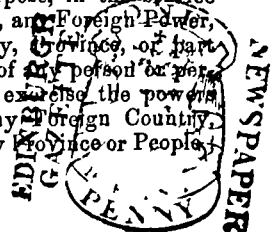 , any Foreign Power,
Province, or part
of any person or per-
exercise the powers
Foreign Country,
Province or People,
EDINBURGH
GAZETTE
NEWSPAPER
PENNY